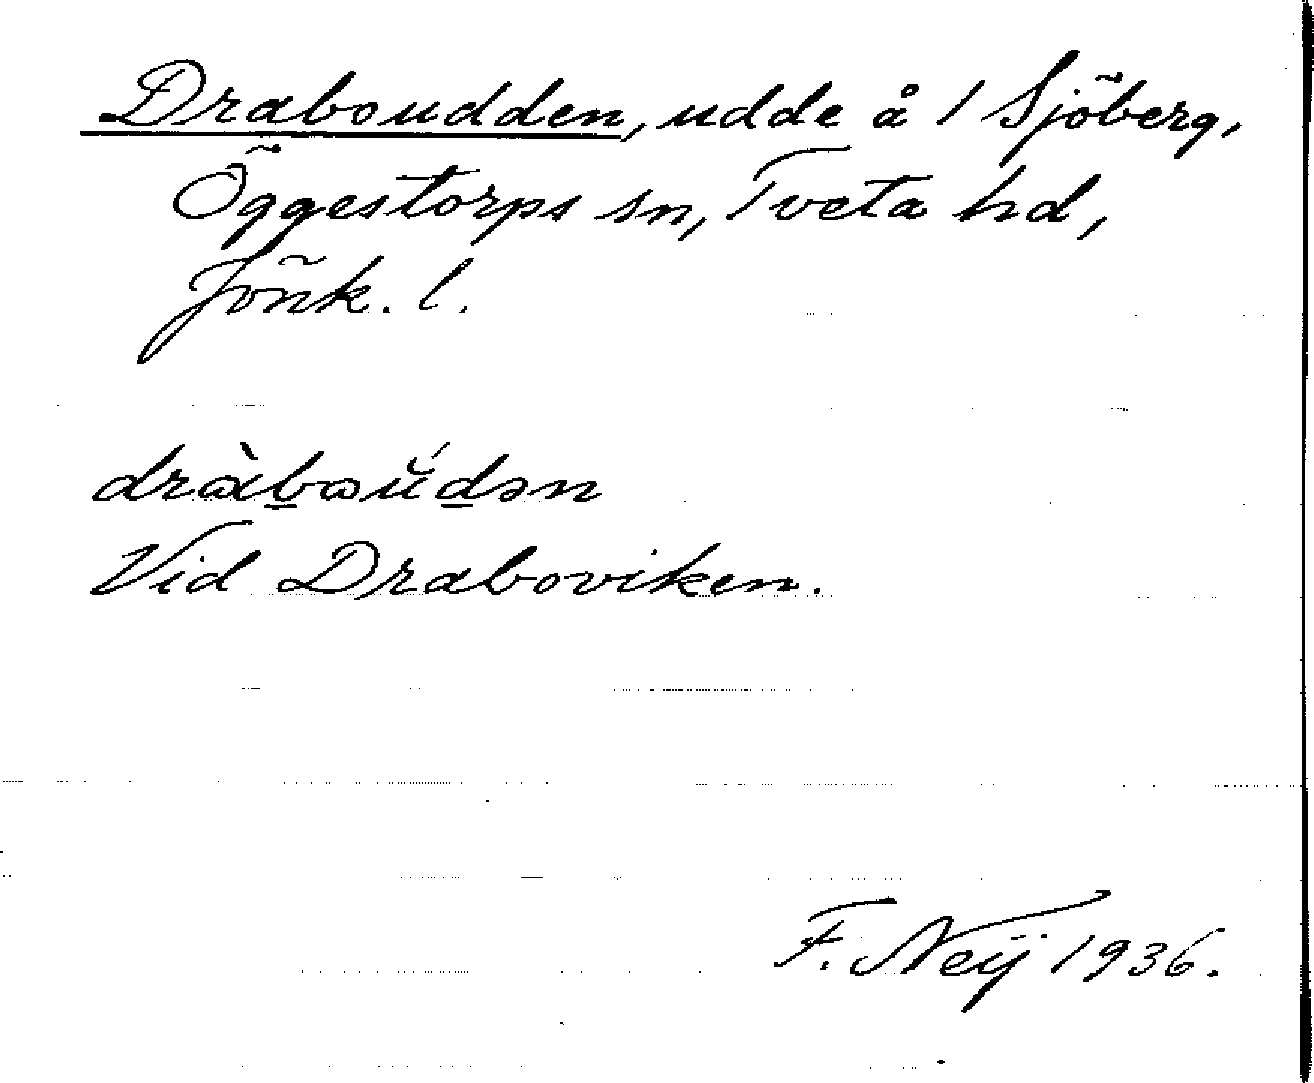 Draboudden, udde å 1 Sjöberg,
Öggestorps sn, Tveta hd,
Jönk. l.
dràbaŭ́dən
Vid Draboviken.
F. Neij 1936.